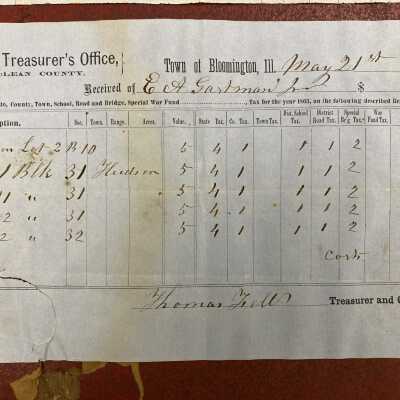 Treasurer's Office,
LEAN COUNTY.
Town of Bloomington, Ill. May 21st
Received of E A Gastman Jr $
County, Town, School, Road and Bridge, Special War Fund Tax for the year 1863, on the following described Re
ption. Sec. Town. Range. Acres. Value. State Tax. Co. Tax. Town Tax. Dist. School Tax. District Road Tax. Special Brg. Tax. War Fund Tax.
on Lot 2 B 10 5 4 1 1 1 2
1 Blk 31 Hudson 5 4 1 1 1 2
1 " 31 5 4 1 1 1 2
2 " 31 5 4 1 1 1 2
2 " 32 5 4 1 1 1 2
Costs
Thomas Fell Treasurer and C